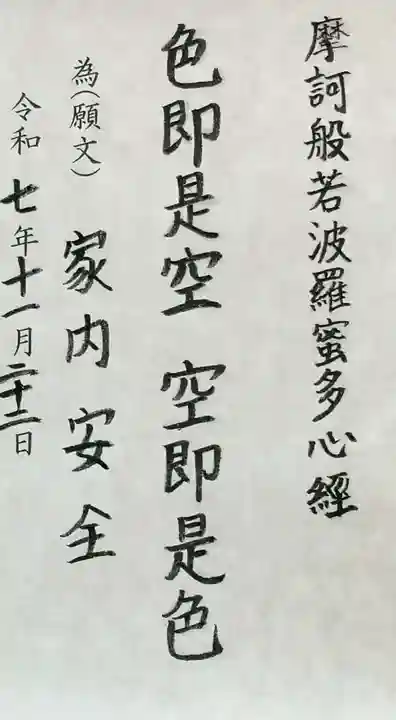 摩訶般若波羅蜜多心経
色即是空 空即是色
為(願文) 家内安全
令和七年十一月二十二日